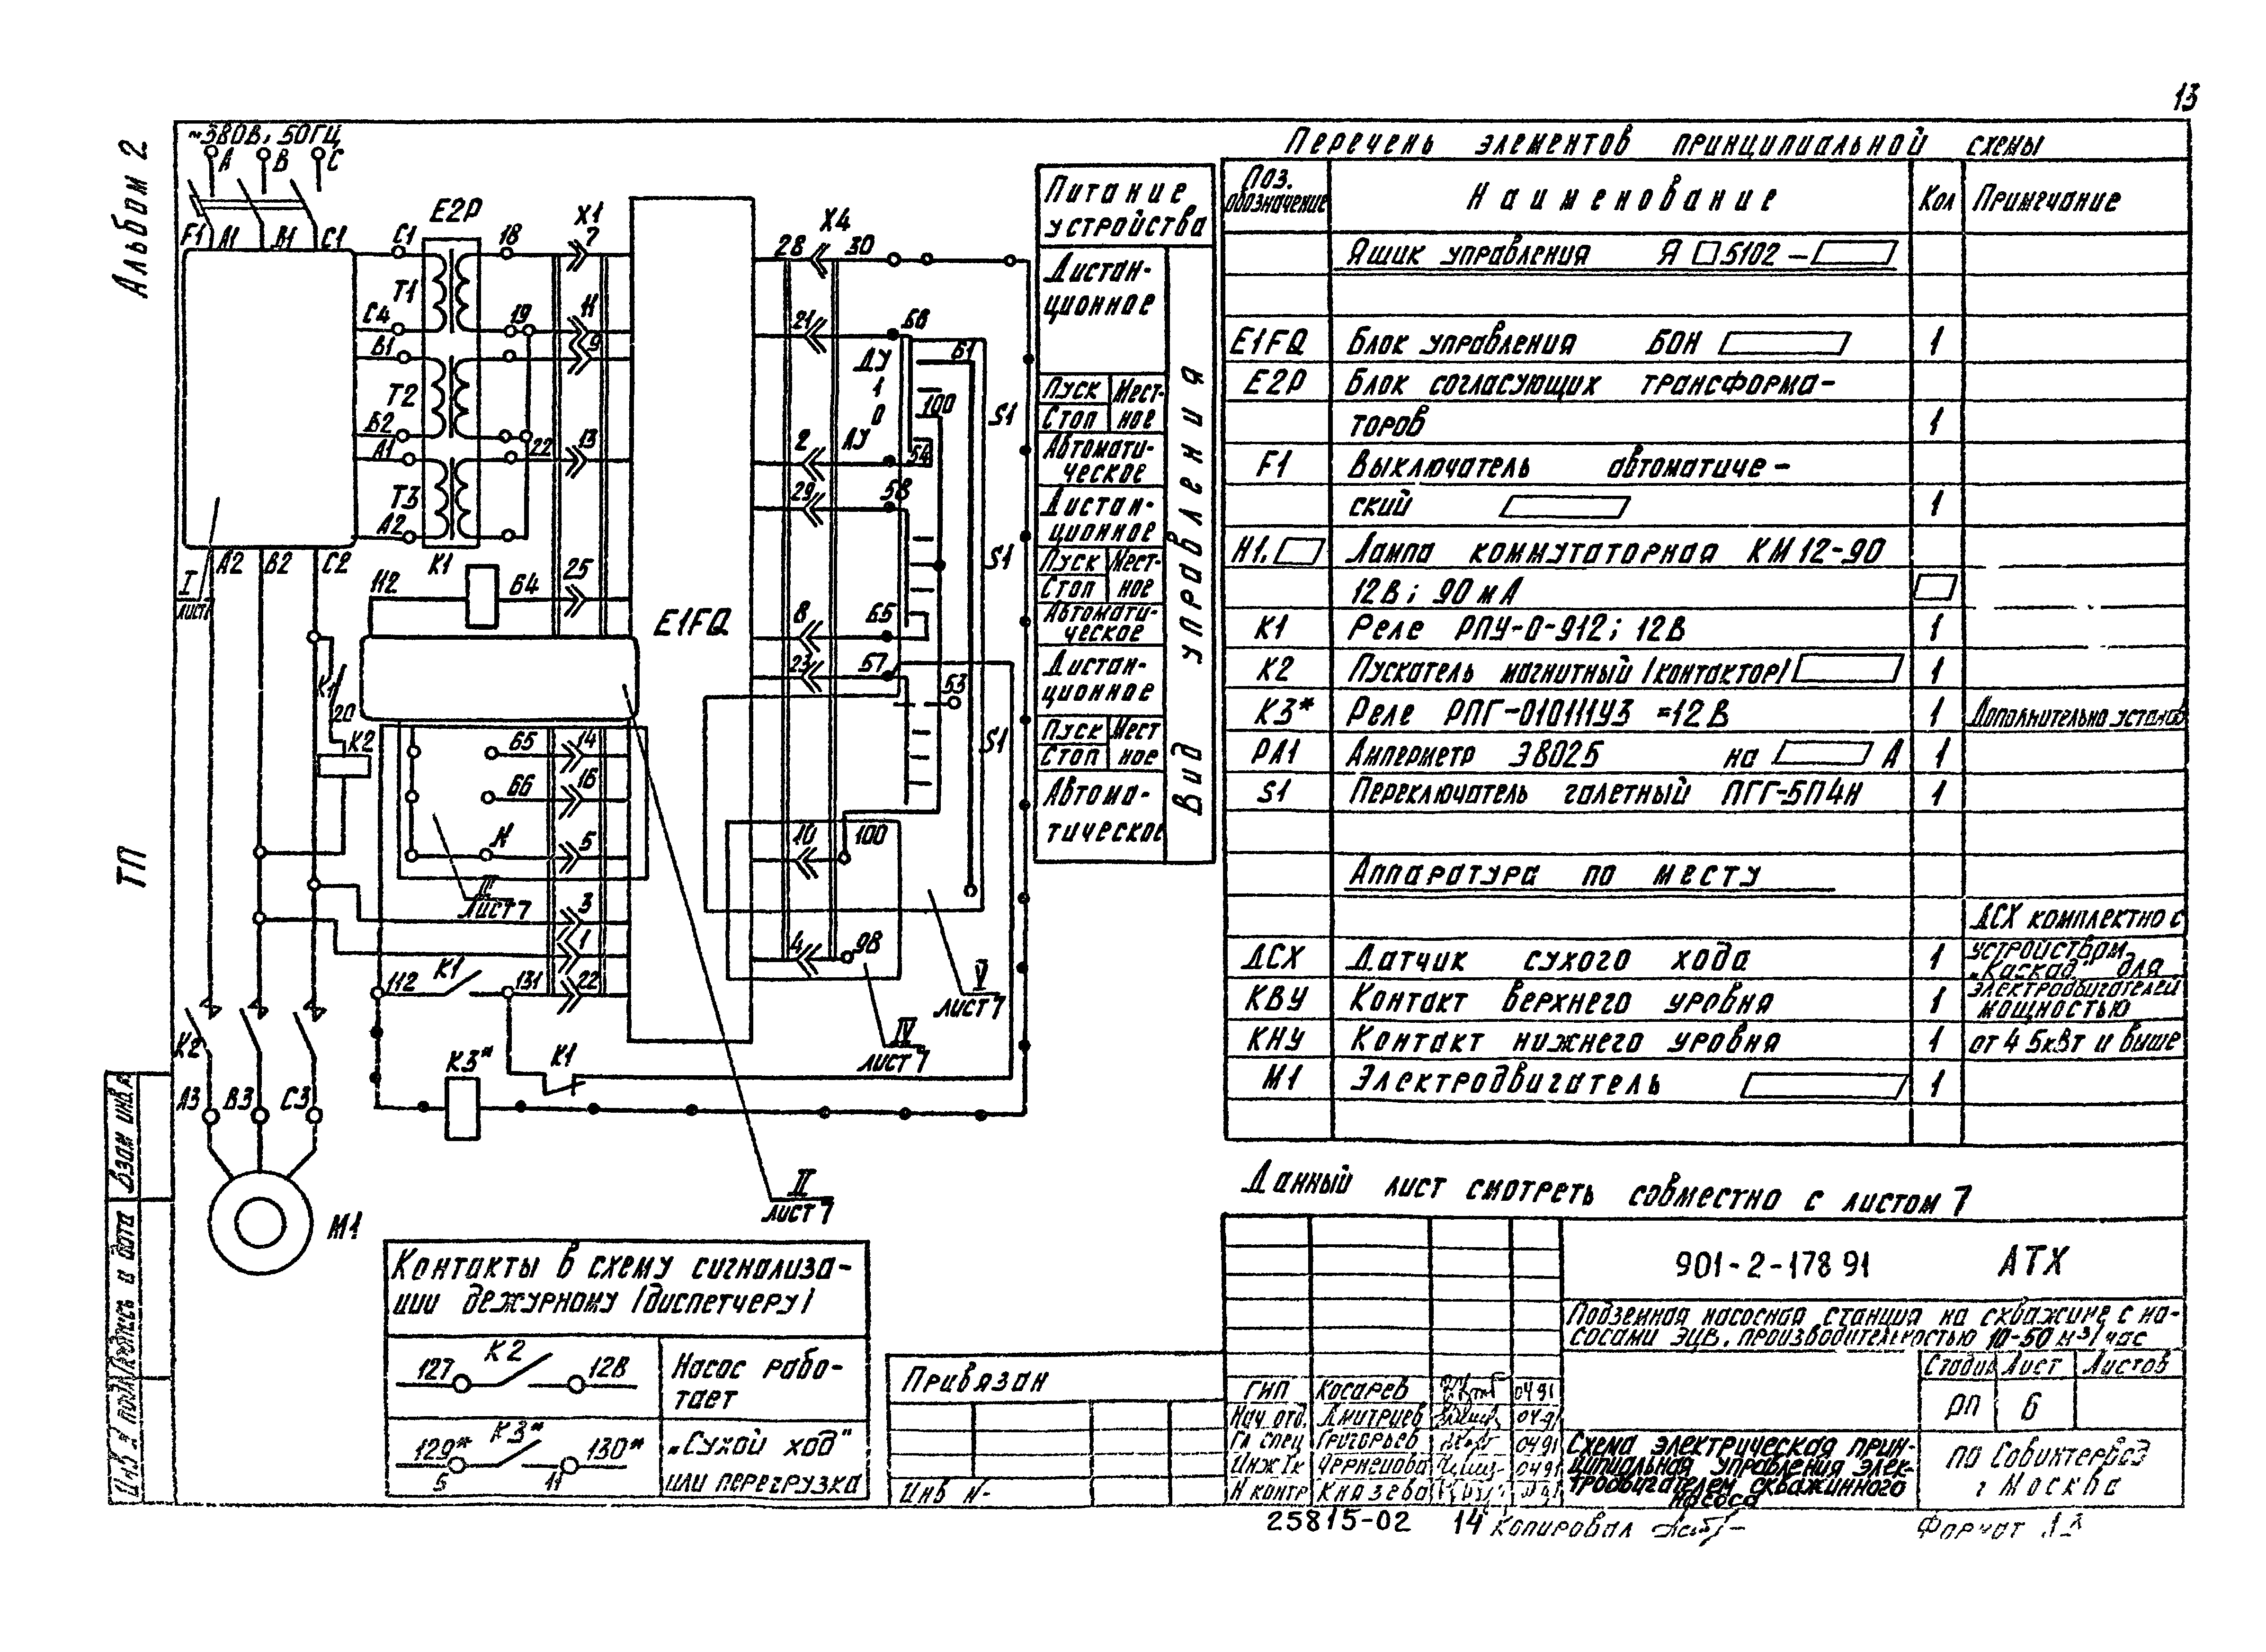 13
Альбом 2
ТП
~380В, 50ГЦ
А В С
F1 А1 В1 С1
E2P
X1
С1 18 7
Т1
С4 19 11
В1 9
Т2
В2
А1 22 13
Т3
А2
K1
А2 В2 С2
I
лист7
112 64 25
E1FQ
K1
20
K2
65 14
66 16
N 5
III
лист 7
3
1
112 K1 131 22
K2
K3*
K1
А3 В3 С3
М1
II
лист 7
X4
28 30
21 66
ДУ
1
0
ЛУ
61
100
S1
2 54
29 58
S1
8 65
23 67
63
S1
10 100
4 98
IV
лист 7
V
лист 7
Питание
устройства
Вид управления
Дистан-
ционное
Пуск Мест-
Стоп ное
Автомати-
ческое
Дистан-
ционное
Пуск Мест-
Стоп ное
Автомати-
ческое
Дистан-
ционное
Пуск Мест
Стоп ное
Автома-
тическое
Перечень элементов принципиальной схемы
Поз. обозначение Наименование Кол Примечание
Ящик управления Я 5102 –
E1FQ Блок управления БОН 1
E2P Блок согласующих трансформа-
торов 1
F1 Выключатель автоматиче-
ский 1
H1. Лампа коммутаторная КМ 12-90
12В; 90 мА
K1 Реле РПУ-0-912; 12В 1
K2 Пускатель магнитный (контактор) 1
K3* Реле РПГ-010111У3 =12В 1 Дополнительно установ
PA1 Амперметр Э8025 на А 1
S1 Переключатель галетный ПГГ-5П4Н 1
Аппаратура по месту
ДСХ комплектно с
ДСХ Датчик сухого хода 1 устройством „Каскад" для
КВУ Контакт верхнего уровня 1 электродвигателей мощностью
КНУ Контакт нижнего уровня 1 от 4 5кВт и выше
М1 Электродвигатель 1
Данный лист смотреть совместно с листом 7
Контакты в схему сигнализа-
ции дежурному (диспетчеру)
127 K2 128 Насос рабо-
тает
129* K3* 130* „Сухой ход"
5 11 или перегрузка
Привязан
Инв N-
901-2-178 91 АТХ
Подземная насосная станция на скважине с на-
сосами ЭЦВ, производительностью 10-50 м³/час
Стадия Лист Листов
РП 6
ГИП Косарев 04 91
Нач отд. Дмитриев 04 91
Гл спец Григорьев 04 91
Инж Iк Чернецова 04 91
Н контр Князева
Схема электрическая прин-
ципиальная управления элек-
тродвигателем скважинного
насоса
ПО Совинтервод
г Москва
25815-02 14 Копировал
Формат А3
Взам инв.
Подпись и дата
Инв N подл